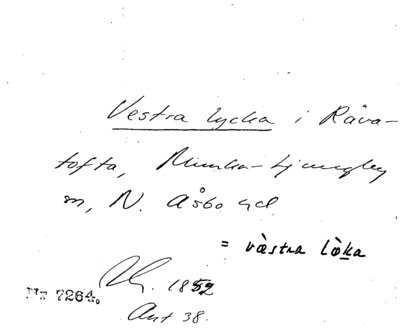 Vestra lycka i Räva-
tofta, Munka-Ljungby
sn, N. Åsbo hd.
= vàstra lòka
1852
Nr 7264.
Akt 38.